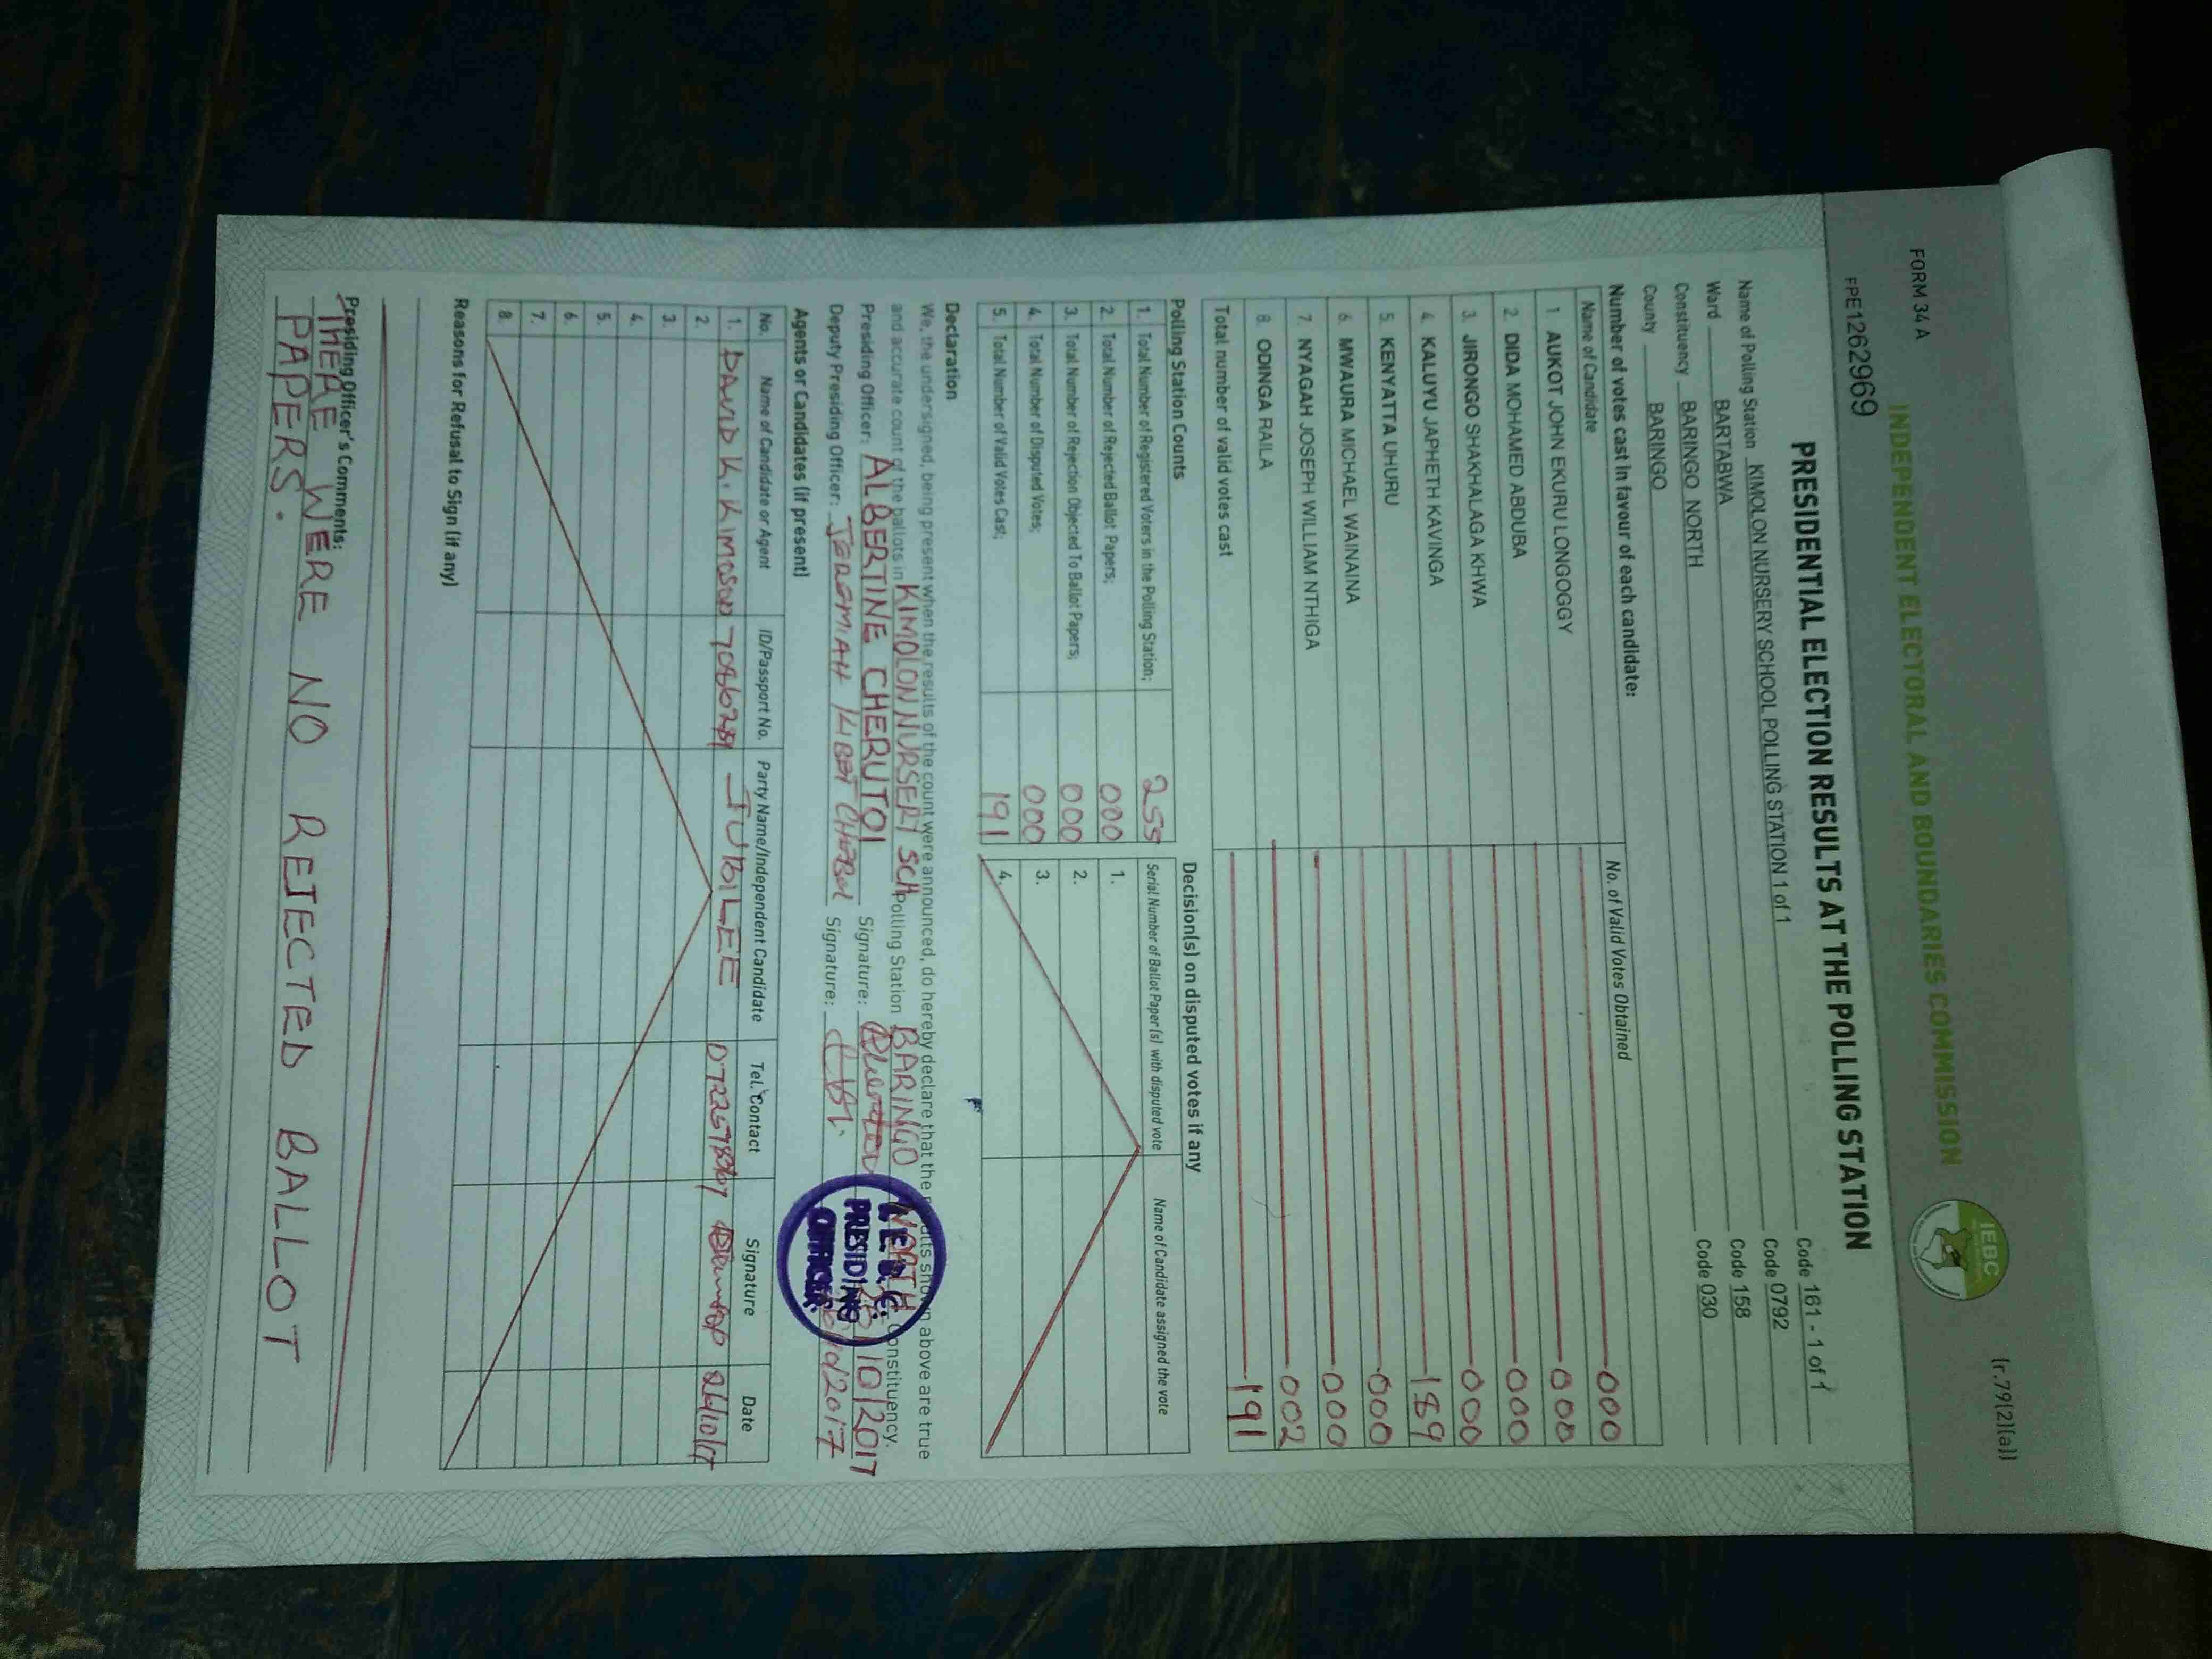 FORM 34 A
(r.79(2)(a))
INDEPENDENT ELECTORAL AND BOUNDARIES COMMISSION
IEBC
FPE1262969
PRESIDENTIAL ELECTION RESULTS AT THE POLLING STATION
Name of Polling Station KIMOLON NURSERY SCHOOL POLLING STATION 1 of 1 Code 161 - 1 of 1
Ward BARTABWA Code 0792
Constituency BARINGO NORTH Code 158
County BARINGO Code 030
Number of votes cast in favour of each candidate:
Name of Candidate No. of Valid Votes Obtained
1 AUKOT JOHN EKURU LONGOGGY 000
2. DIDA MOHAMED ABDUBA 000
3. JIRONGO SHAKHALAGA KHWA 000
4. KALUYU JAPHETH KAVINGA 000
5. KENYATTA UHURU 189
6. MWAURA MICHAEL WAINAINA 000
7. NYAGAH JOSEPH WILLIAM NTHIGA 000
8. ODINGA RAILA 002
Total number of valid votes cast 191
Polling Station Counts
1. Total Number of Registered Voters in the Polling Station; 255
2. Total Number of Rejected Ballot Papers; 000
3. Total Number of Rejection Objected To Ballot Papers; 000
4. Total Number of Disputed Votes; 000
5. Total Number of Valid Votes Cast; 191
Decision(s) on disputed votes if any
Serial Number of Ballot Paper (s) with disputed vote Name of Candidate assigned the vote
1.
2.
3.
4.
Declaration
We, the undersigned, being present when the results of the count were announced, do hereby declare that the results shown above are true
and accurate count of the ballots in KIMOLON NURSERY SCH Polling Station BARINGO NORTH Constituency.
Presiding Officer: ALBERTINE CHERUTOI Signature: 10/2017
Deputy Presiding Officer: JEREMIAH KIBET Signature: 2017
I.E.B.C.
PRESIDING
OFFICER
Agents or Candidates (if present)
No. Name of Candidate or Agent ID/Passport No. Party Name/Independent Candidate Tel. Contact Signature Date
1. DAVID K. KIMOSOP JUBILEE
2.
3.
4.
5.
6.
7.
8.
Reasons for Refusal to Sign (if any)
Presiding Officer's Comments:
THERE WERE NO REJECTED BALLOT
PAPERS.